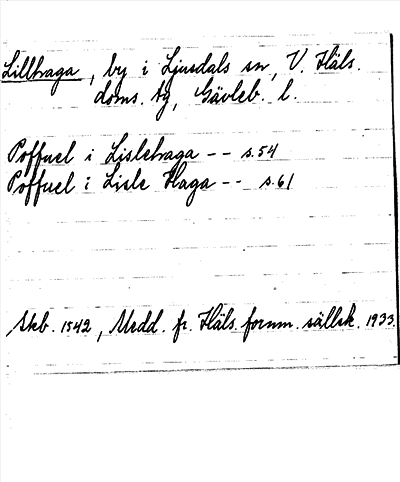 Lillhaga, by i Ljusdals sn, V. Häls.
doms. sg, Gävleb. l.
Poffuel i Lislehaga -- s.54
Poffuel i Lisle Haga -- s.61
Skb. 1542, Medd. fr. Häls. fornm. sällsk. 1933.